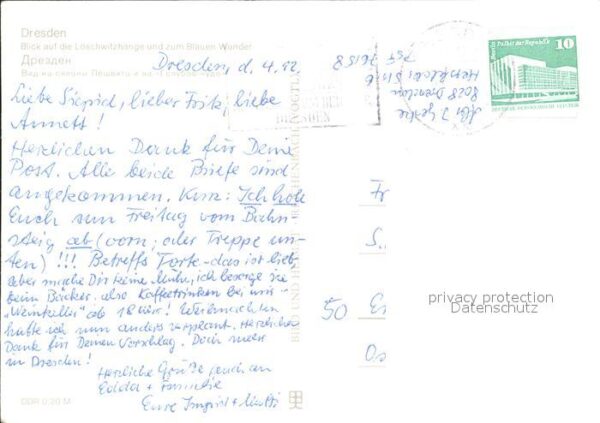 Dresden
Blick auf die Loschwitzhänge und zum Blauen Wunder
Дрезден
Вид на склоны Лошвитз и на «Голубое чудо»
Dresden, d. 4.12
Liebe Sigrid, lieber Fritz, liebe
Annett!
Herzlichen Dank für Deine
Post. Alle beide Briefe sind
angekommen. Kurz: Ich hole
Euch zum Freitag vom Bahn-
steig ab (vorn, oder Treppe un-
ten)!!! Betreffs Torte - das ist lieb,
aber mache Dir keine Mühe, ich besorge sie
beim Bäcker. Also Kaffeetrinken bei uns -
"Weinkeller" ab 18 Uhr! Weihnachten
hatte ich nun anders verplant. Herzlichen
Dank für Deinen Vorschlag. Doch mehr
in Dresden!
Herzliche Grüße auch an
Edda + Familie
Eure Ingrid + Mutti
DDR 0,20 M
8028 Dresden
DRESDEN
Berlin, Palast der Republik
10
DEUTSCHE DEMOKRATISCHE REPUBLIK
Fr
50
privacy protection
Datenschutz